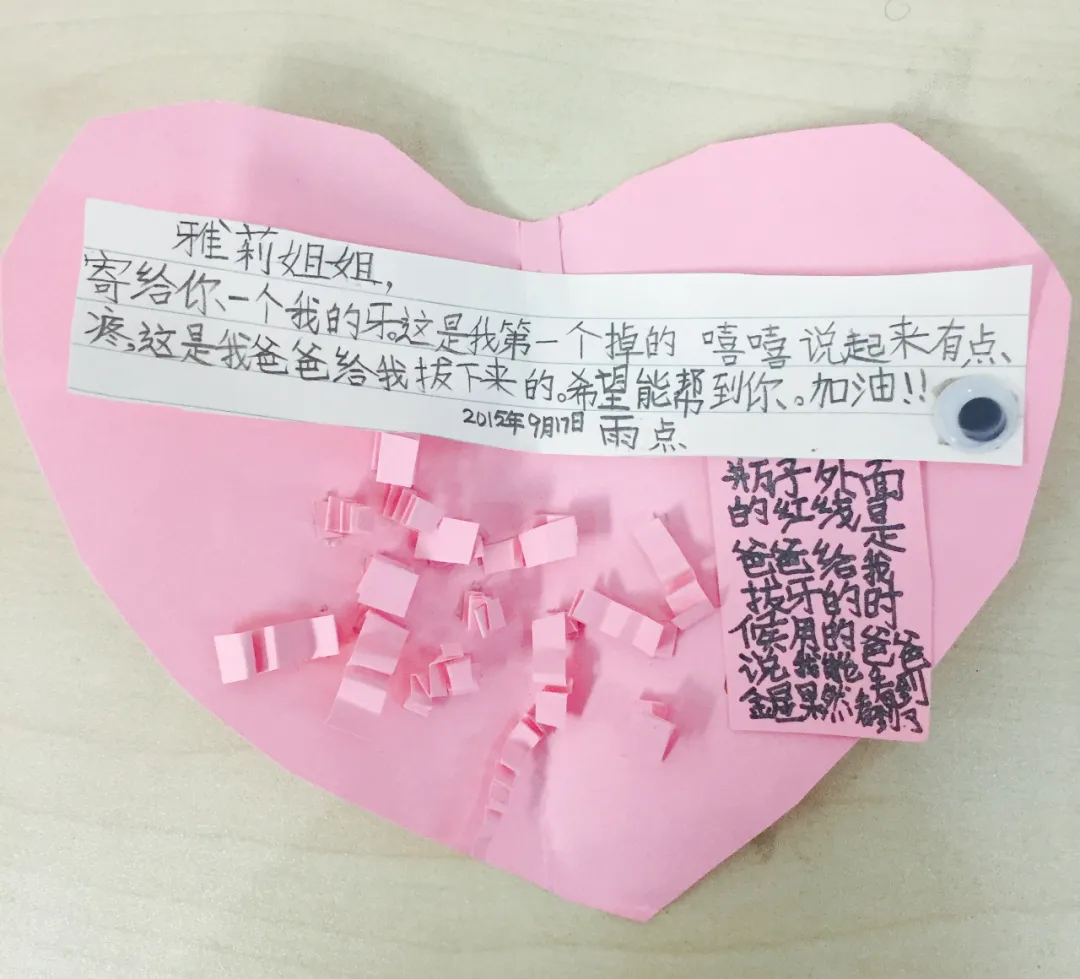 雅莉姐姐，
寄给你一个我的牙。这是我第一个掉的 嘻嘻 说起来有点
疼，这是我爸爸给我拔下来的。希望能帮到你。加油!!
2015年9月17日 雨点
子外面
的红线是
爸爸给我
拔牙的时
候用的爸爸
说我能看到
金星果然看到了